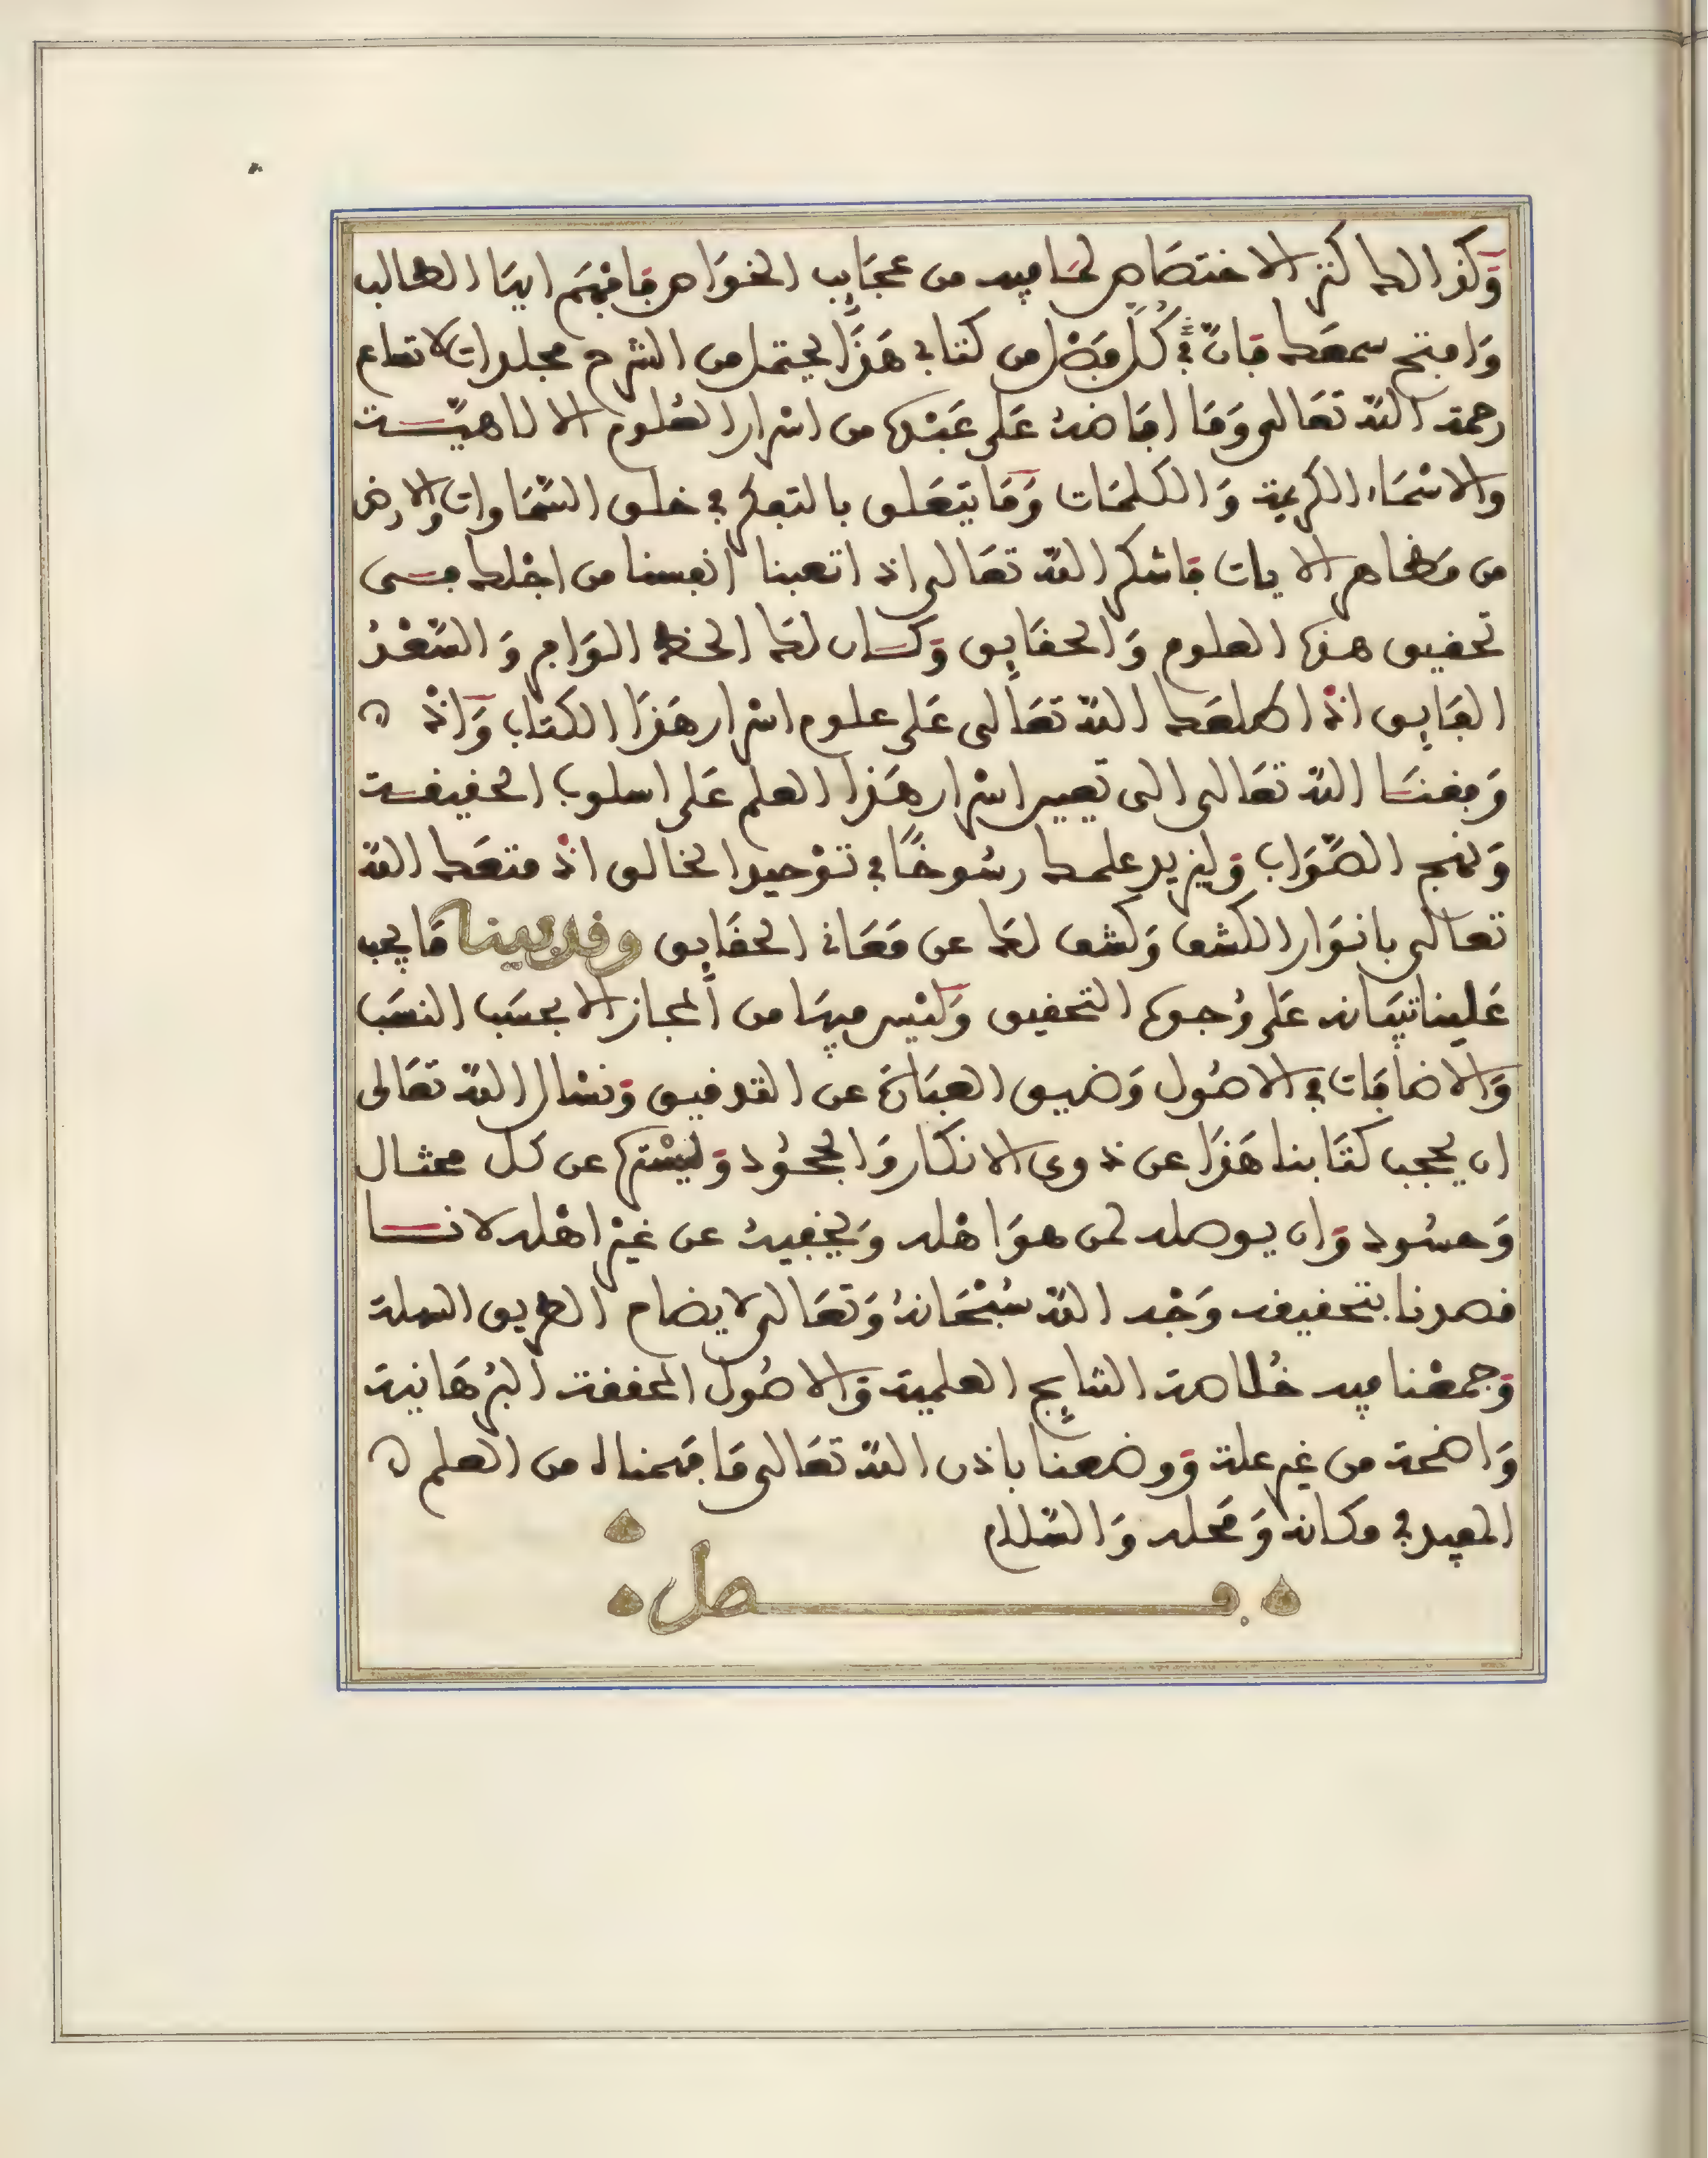 وَكذالك كنز الاختصاص لما فيه من عجَايب الخوَاص فافهَم ايهَا الطالب
وَافتح سمعَك فانّ في كُلّ فصْل من كتابي هَذَا يحتمل من الشرح مجلدات لاتساع
رحمة اللّه تعَالى وَمَا افاضهُ عَلى عَبْده من اسْرار العُلوم الالاهيّــة
والاسْمَاء الكريمة وَالكلمَات وَمَا يتعَلق بالتفكر في خلق السّمَاوات والارض
من مَظاهر الايات فاشكر اللّه تعَالى اذ اتعبنا انفسنا من اجْلك فــى
تحقيق هذه العلوم وَالحقَايق وَكــان لك الحظ الوَافر وَالسّعْدُ
الفَايق اذْ اطلعَك اللّه تعَالى عَلى علوم اسْرار هَذَا الكتاب وَاذْ ه
وَفقنــا اللّه تعَالى الى تفسير اسْرار هَذا العلم عَلى اسلوب الحقيقــة
وَنهج الصّوَاب وَليزيد علمــك رسُوخًا في توْحيد الخالق اذْ متعَك اللّه
تعالى بانوَار الكشف وَكشف لك عن مَعَاني الحقَايق وقد بينا مَا يجب
عَلينا تبيَانه عَلى وُجوه التحقيق وَليْس فيهَا من المجاز الا بحسَب النسَب
وَالاضافَات في الاصُول وَضيق العبَارَة عن التدقيق وَنسْال اللّه تعَالى
ان يحجب كتَابنا هَذَا عن ذوى الانكار وَالجحُود وَليسْتره عن كل محتال
وَحسُود وَان يوصله لمن هوَ اهْله وَيخفيهُ عن غيْر اهْله لانــا
قصدنا بتحقيقه وَجْه اللّه سُبْحَانهُ وَتعَالى لايضاح الطريق السهلة
وَجمعْنا فيه خُلاصة النتايج العلمية وَالاصُول المحققة البُرهَانية
وَاضحة من غير علة وَوضعنا باذن اللّه تعَالى مَا فهمناه من العلم ه
المفيد في مكانه وَمَحله وَالسّلام
فــصل